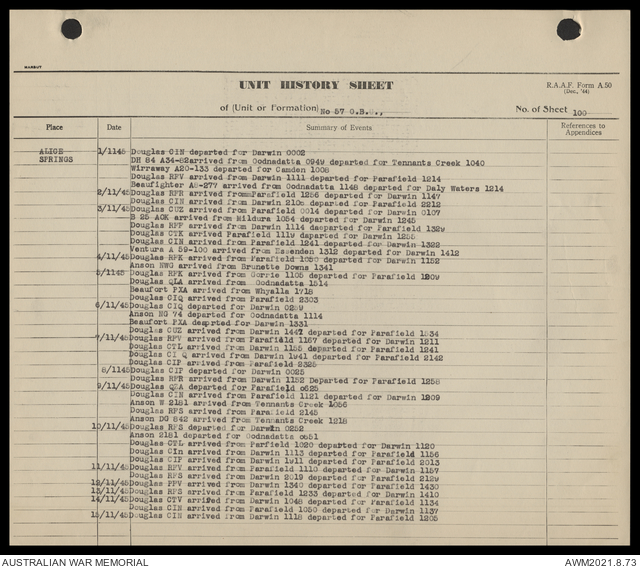 WARBUT
UNIT HISTORY SHEET
R.A.A.F. Form A.50
(Dec., '44)
of (Unit or Formation) No 57 O.B.U.,
No. of Sheet 100
Place Date Summary of Events References to Appendices
ALICE SPRINGS
1/1145 Douglas CIN departed for Darwin 0002
DH 84 A34-82arrived from Oodnadatta 0949 departed for Tennants Creek 1040
Wirraway A20-133 departed for Camden 1008
Douglas RFV arrived from Darwin 1111 departed for Parafield 1214
Beaufighter A8-277 arrived from Oodnadatta 1148 departed for Daly Waters 1214
2/11/45 Douglas RFR arrivedfromParafield 1256 departed for Darwin 1147
Douglas CIN arrived from Darwin 2108 departed for Parafield 2212
3/11/45 Douglas CUZ arrived from Parafield 0014 departed for Darwin 0107
B 25 ACK arrived from Mildura 1054 departed for Darwin 1245
Douglas RFF arrived from Darwin 1114 departed for Parafield 1329
Douglas CTK arrived Parafield 1119 departed for Darwin 1255
Douglas CIN arrived from Parafield 1241 departed for Darwin 1322
Ventura A 59-100 arrived from Essenden 1312 departed for Darwin 1412
4/11/45 Douglas RPK arrived from Parafield 1050 departed for Darwin 1152
Anson NWG arrived from Brunette Downs 1341
5/1145 Douglas RFK arrived from Gorrie 1105 departed for Parafield 1209
Douglas QLA arrived from Oodnadatta 1514
Beaufort PXA arrived from Whyalla 1718
Douglas CIQ arrived from Parafield 2303
6/11/45 Douglas CIQ departed for Darwin 0259
Anson NG 74 departed for Oodnadatta 1114
Beaufort PXA departed for Darwin 1331
Douglas CUZ arrived from Darwin 1447 departed for Parafield 1534
7/11/45 Douglas RPV arrived from Parafield 1157 departed for Darwin 1211
Douglas CTL arrived from Darwin 1155 departed for Parafield 1241
Douglas CI Q arrived from Darwin 1941 departed for Parafield 2142
Douglas CIF arrived from Parafield 2325
8/1145 Douglas CIF departed for Darwin 0025
Douglas RFR arrived from Darwin 1152 Departed for Parafield 1258
9/11/45 Douglas QZA departed for Parafield 0625
Douglas CIN arrived from Parafield 1121 departed for Darwin 1209
Anson W 2181 arrived from Tennants Creek 1056
Douglas RFS arrived from Parafield 2145
Anson DG 842 arrived from Tennants Creek 1218
10/11/45 Douglas RFS departed for Darwin 0252
Anson 2181 departed for Oodnadatta 0651
Douglas CTL arrived from Parfield 1020 departed for Darwin 1120
Douglas CIn arrived from Darwin 1113 departed for Parafield 1156
Douglas CIF arrived from Darwin 1911 departed for Parafield 2013
11/11/45 Douglas RFV arrived from Parafield 1110 departed for Darwin 1157
Douglas RFS arrived from Darwin 2019 departed for Parafield 2129
12/11/45 Douglas PPV arrived from Darwin 1340 departed for Parafield 1430
13/11/45 Douglas RFS arrived from Parafield 1233 departed for Darwin 1410
14/11/45 Douglas CTV arrived from Darwin 1048 departed for Parafield 1134
Douglas CIN arrived from Parafield 1050 departed for Darwin 1137
15/11/45 Douglas CIN arrived from Darwin 1118 departed for Parafield 1205
AUSTRALIAN WAR MEMORIAL
AWM2021.8.73